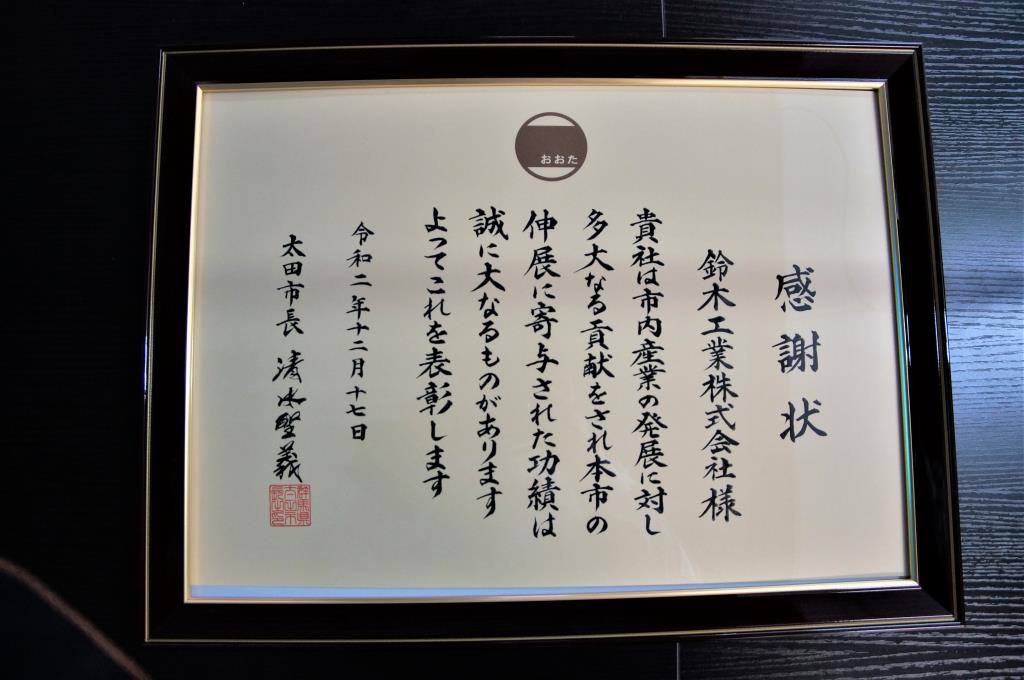 おおた
感謝状
鈴木工業株式会社様
貴社は市内産業の発展に対し
多大なる貢献をされ本市の
伸展に寄与された功績は
誠に大なるものがあります
よってこれを表彰します
令和二年十二月十七日
太田市長 清水聖義